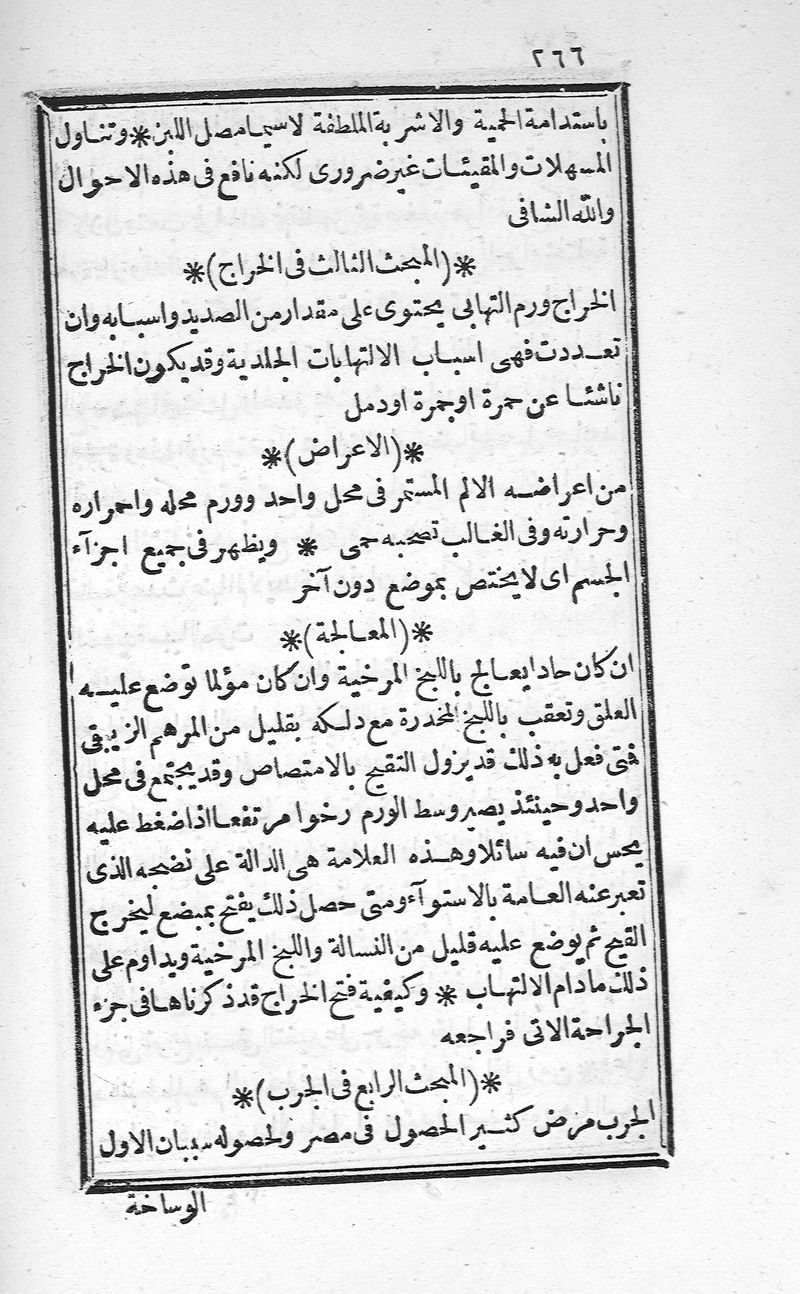 ٢٦٦
باستدامة الحمية والاشربة الملطفة لاسيما مصل اللبن * وتناول
المسهلات والمقيئات غير ضرورى لكنه نافع فى هذه الاحوال
والله الشافى
*(المبحث الثالث فى الخراج)*
الخراج ورم التهابى يحتوى على مقدار من الصديد واسبابه وان
تعددت فهى اسباب الالتهابات الجلدية وقد يكون الخراج
ناشئا عن حمرة اوجمرة اودمل
*(الاعراض)*
من اعراضه الالم المستمر فى محل واحد وورم محله واحمراره
وحرارته وفى الغالب تصحبه حمى * ويظهر فى جميع اجزآء
الجسم اى لا يختص بموضع دون آخر
*(المعالجة)*
ان كان حادا يعالج باللبخ المرخية وان كان مؤلما توضع عليه
العلق وتعقب باللبخ المخدرة مع دلكه بقليل من المرهم الزيبقى
فمتى فعل به ذلك قد يزول التقيح بالامتصاص وقد يجتمع فى محل
واحد وحينئذ يصير وسط الورم رخوا مرتفعا اذا ضغط عليه
يحس ان فيه سائلا وهذه العلامة هى الدالة على نضجه الذى
تعبر عنه العامة بالاستوآء ومتى حصل ذلك يفتح بمبضع ليخرج
القيح ثم يوضع عليه قليل من النسالة واللبخ المرخية ويداوم على
ذلك مادام الالتهاب * وكيفية فتح الخراج قد ذكرناها فى جزء
الجراحة الاتى فراجعه
*(المبحث الرابع فى الجرب)*
الجرب مرض كثير الحصول فى مصر ولحصوله سببان الاول
الوساخة